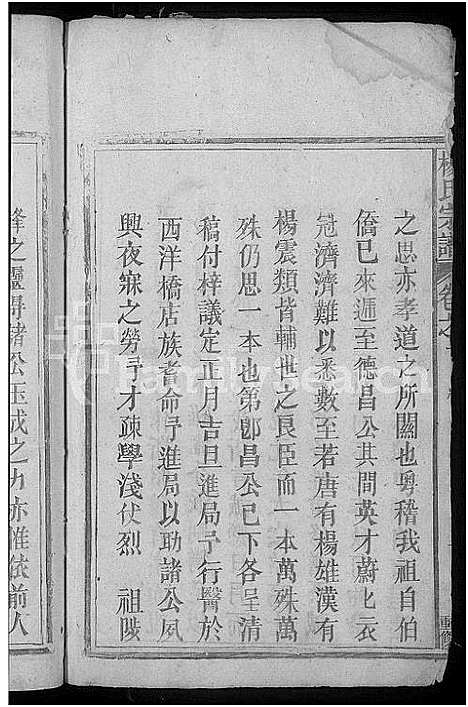 楊氏宗譜 卷之
重修
之思亦孝道之所關也粵稽我祖自伯
僑已來遞至德昌公其間英才蔚七衣
冠濟濟難以悉數至若唐有楊雄漢有
楊震類皆輔世之良臣而一本萬殊萬
殊仍思一本也第卽昌公已下各呈清
稿付梓議定正月吉旦進局予行醫於
西洋橋店族耆命予進局以助諸公夙
興夜寐之勞予才疎學淺仗烈 祖陟
降之靈得諸公玉成之力亦惟依前人
FamilySearch